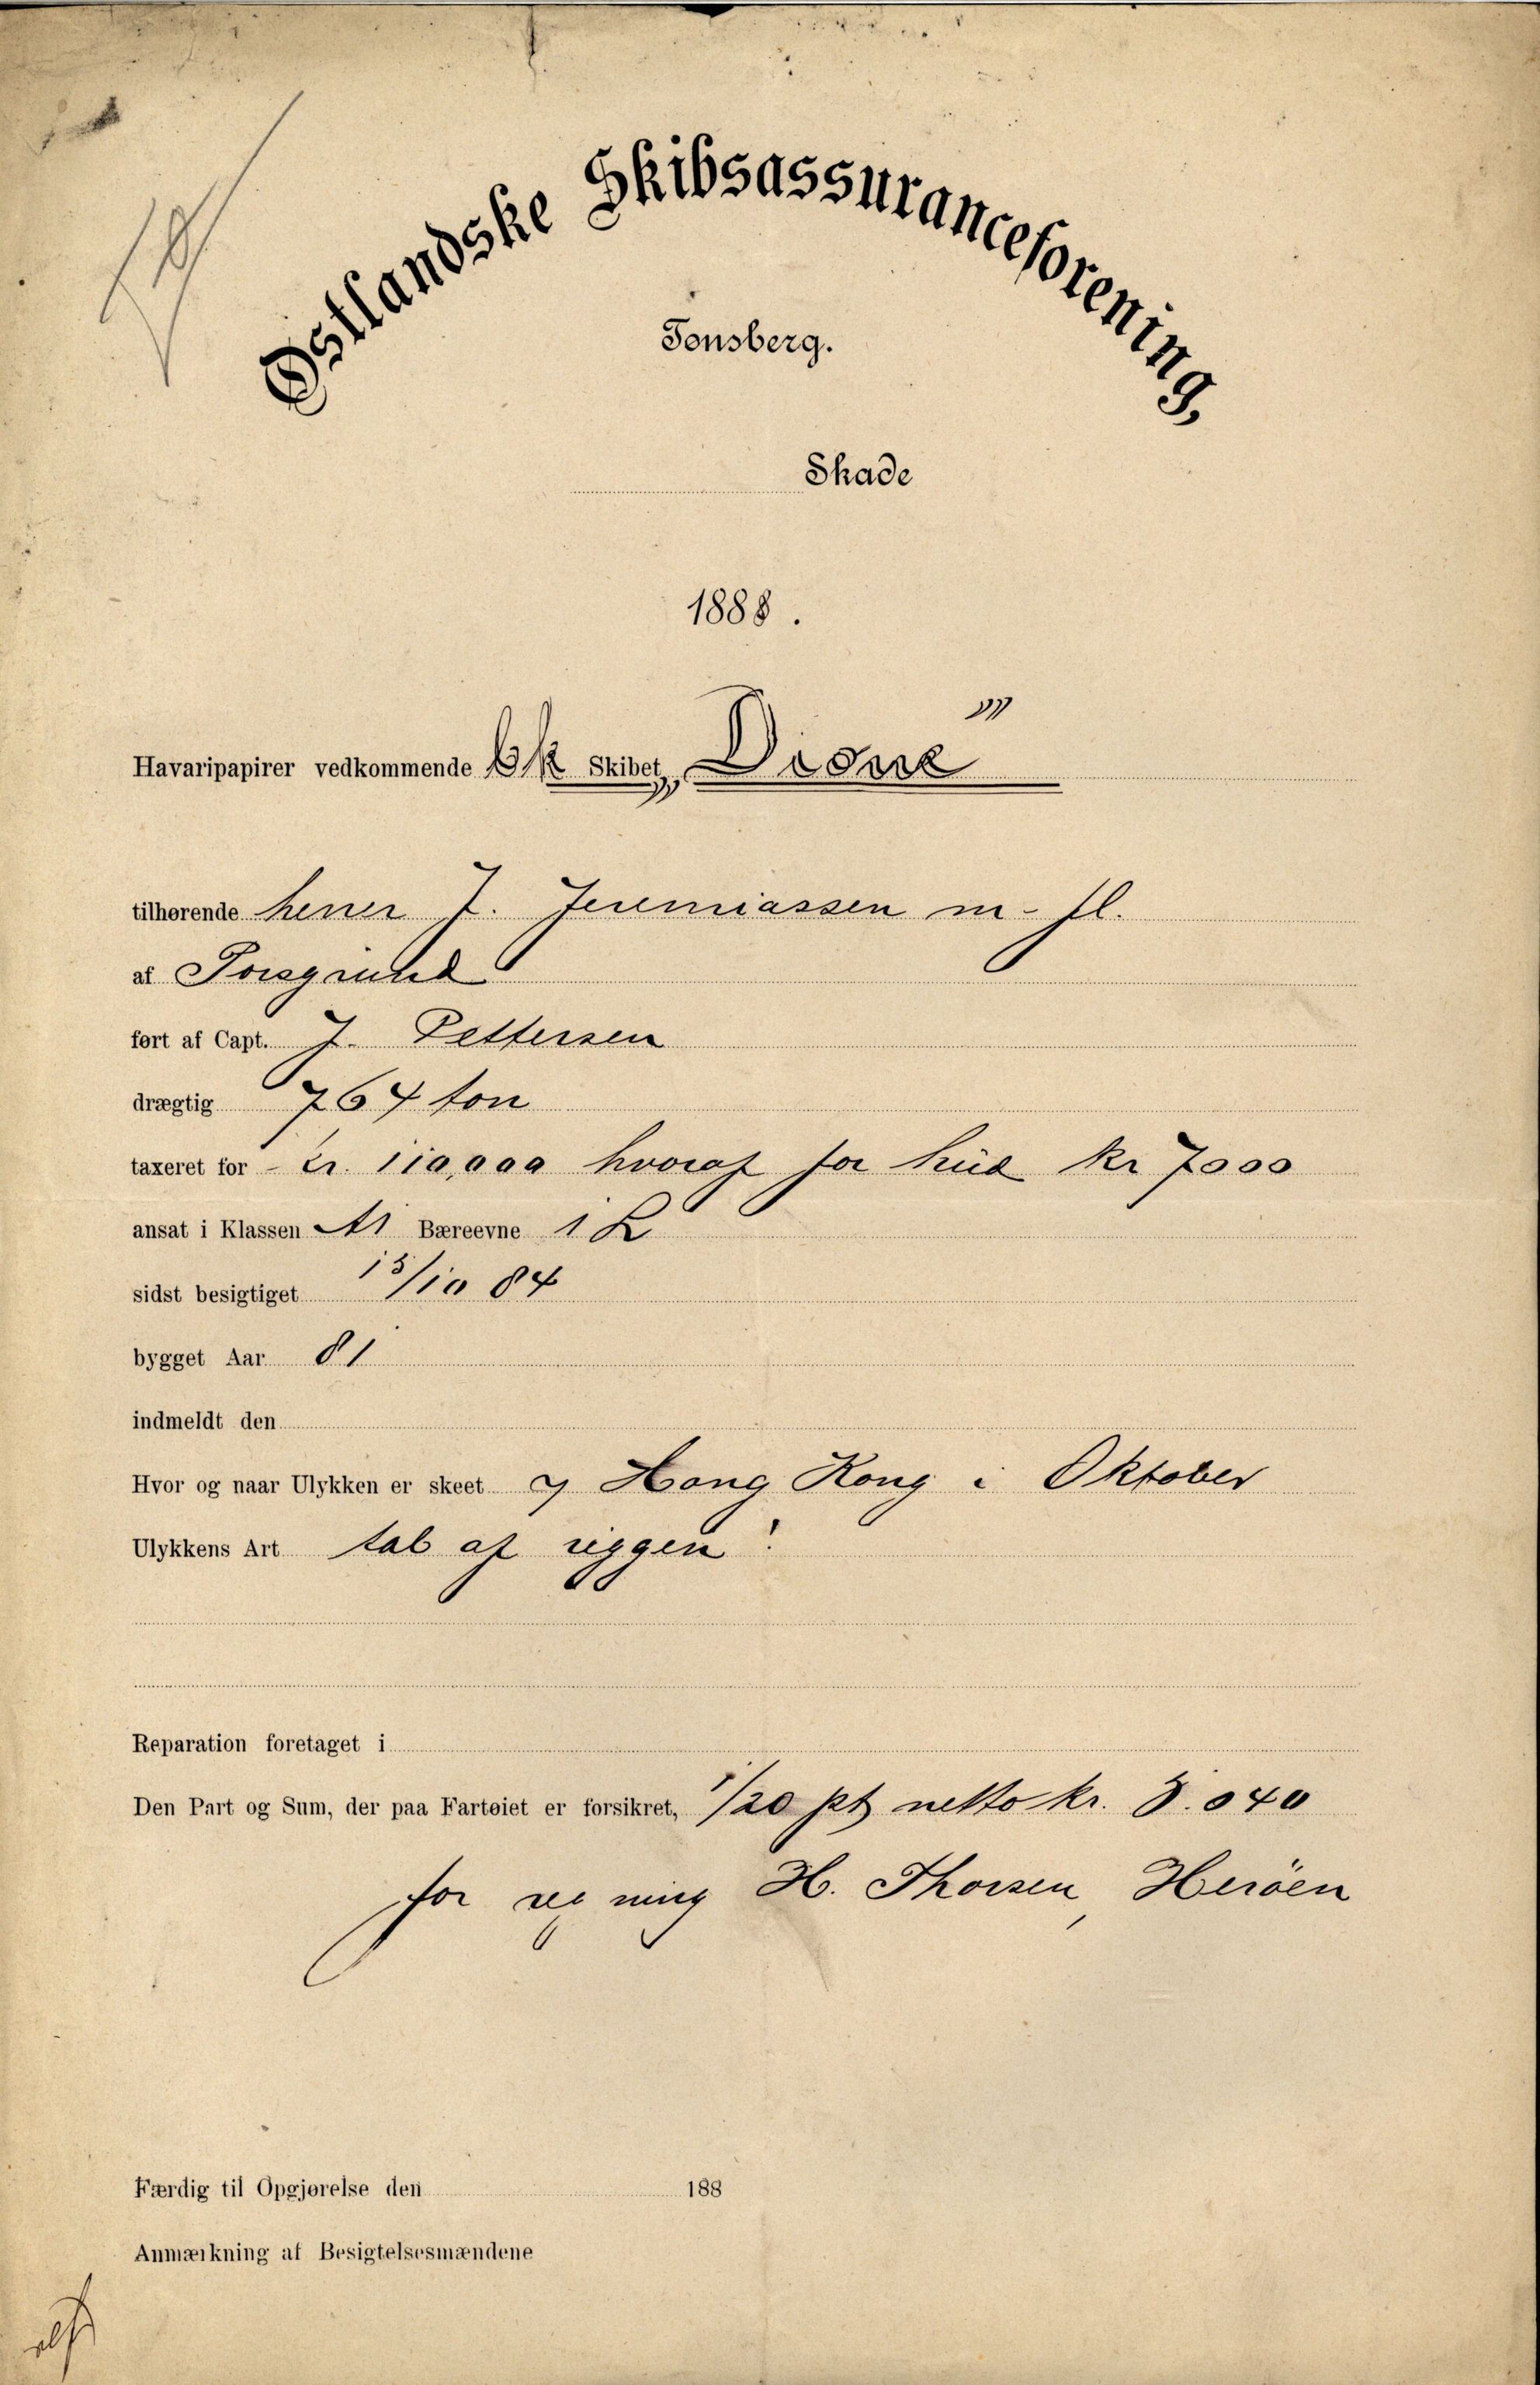 Østlandske Skibsassuranceforening,
Tønsberg.
Skade
1888.
Havaripapirer vedkommende Bk Skibet „Dione"
tilhørende herrer J. Jeremiassen m. fl.
af Porsgrund
ført af Capt. J. Pettersen
drægtig 764 ton
taxeret for kr. 110,000 hvoraf for hud kr 7000
ansat i Klassen A1 Bæreevne 1 L
sidst besigtiget 13/10 84
bygget Aar 81
indmeldt den
Hvor og naar Ulykken er skeet Hong Kong i Oktober
Ulykkens Art tab af riggen
Reparation foretaget i
Den Part og Sum, der paa Fartøiet er forsikret, 1/20 pt netto kr. 3.040
for regning H. Thorsen, Herøen
Færdig til Opgjørelse den 188
Anmærkning af Besigtelsesmændene